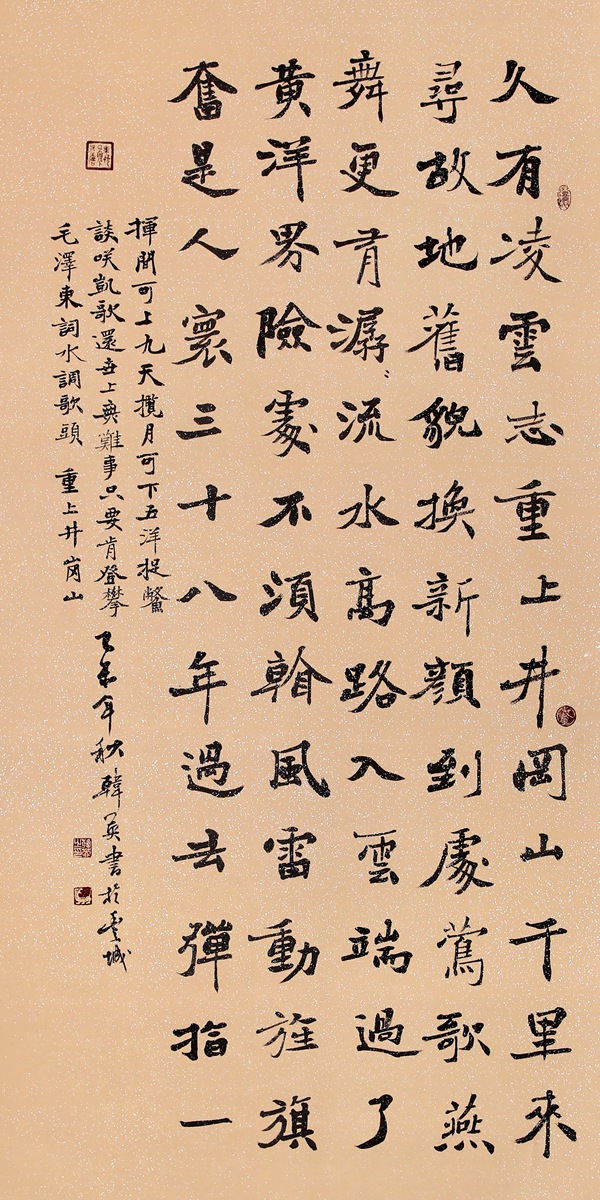 久有凌雲志重上井岡山千里來
尋故地舊貌換新顏到處鶯歌燕
舞更有潺〻流水高路入雲端過了
黃洋界險處不須看風雷動旌旗
奮是人寰三十八年過去彈指一
揮間可上九天攬月可下五洋捉鱉
談咲凱歌還世上無難事只要肯登攀
毛澤東詞水調歌頭 重上井崗山
乙未年秋韓英書於雲城